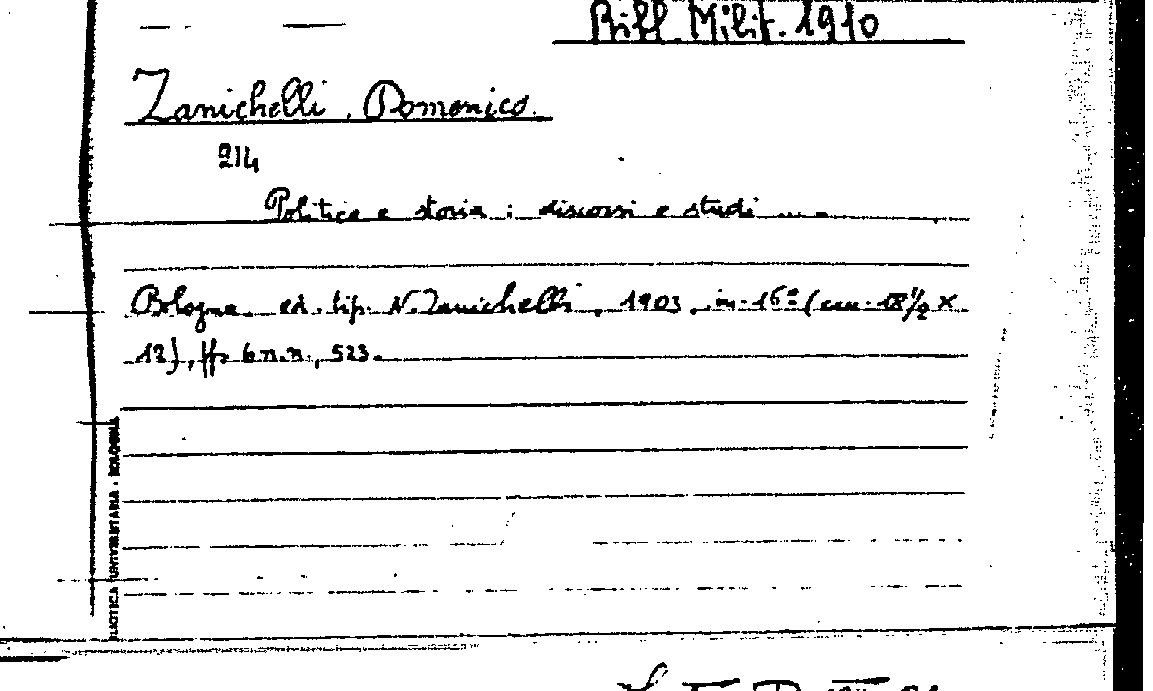 Bibl. Milit. 1910
Zanichelli, Domenico.
214
Politica e storia : discorsi e studi ....
Bologna. ed. tip. N. Zanichelli, 1903. in-16º (cm. 18½ ×
12), ff. 6 n.n., 523.
UNIVERSITARIA - BOLOGNA